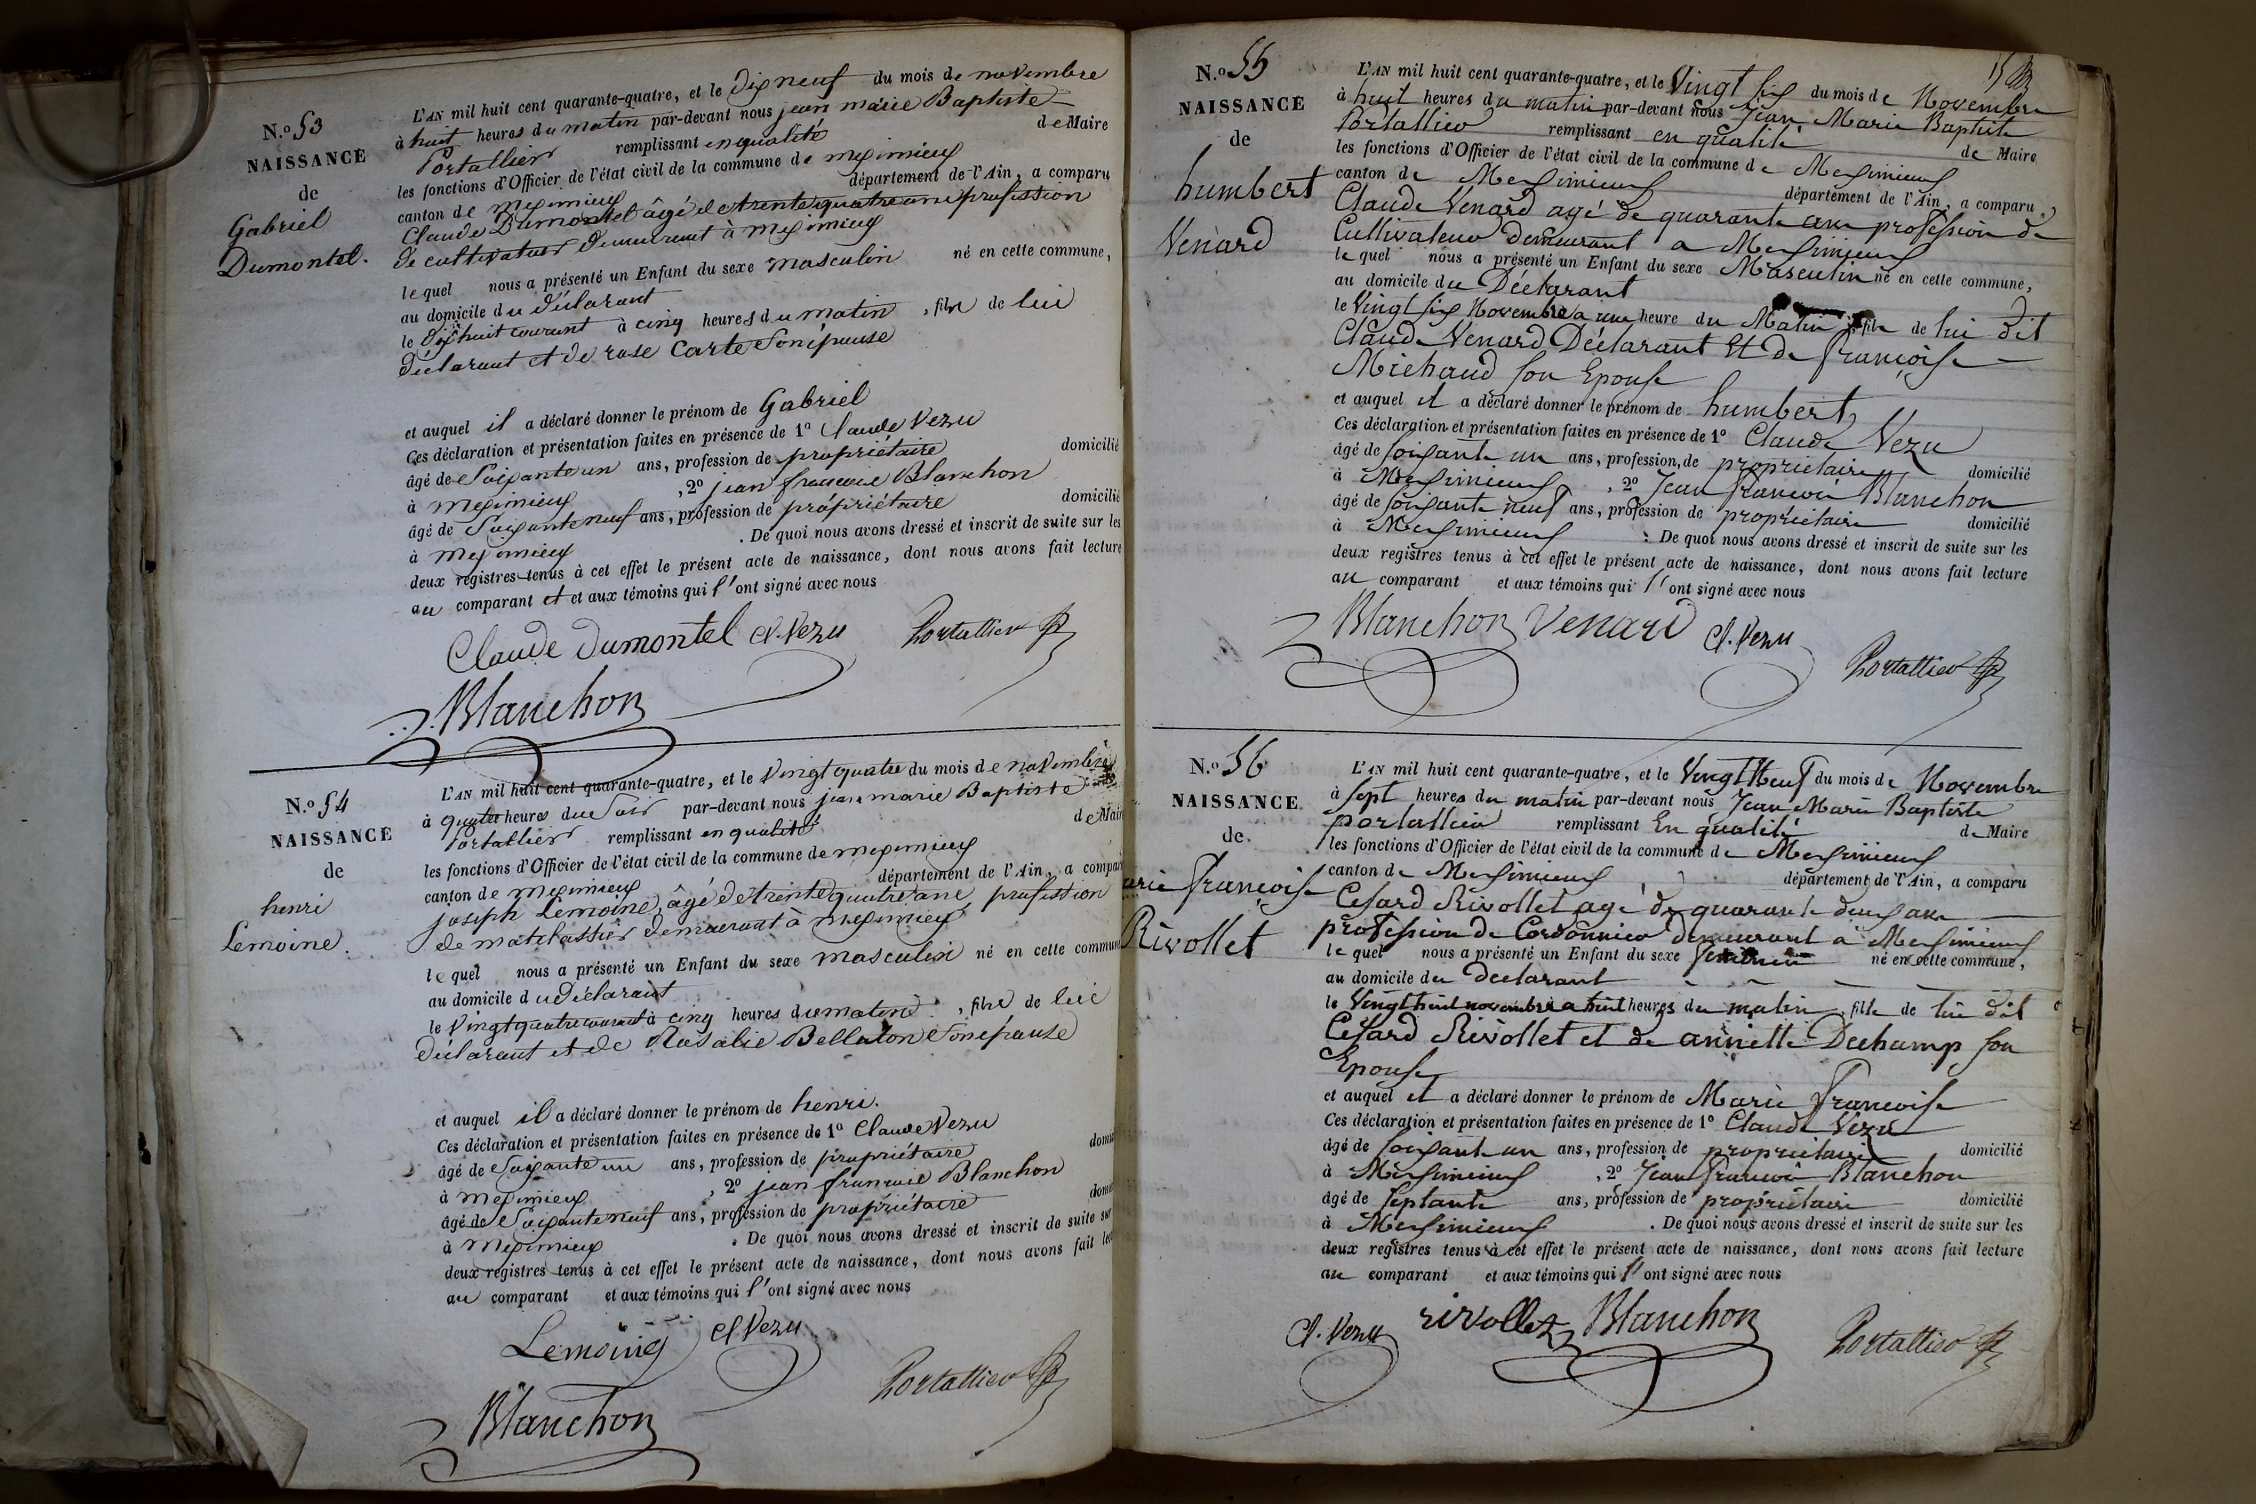 N.º 53
NAISSANCE
de
Gabriel
Dumontel.
L'AN mil huit cent quarante-quatre, et le dixneuf du mois de novembre
à huit heures du matin par-devant nous jean marie Baptiste
Portallier remplissant en qualité de Maire
les fonctions d'Officier de l'état civil de la commune de meximieux
canton de meximieux département de l'Ain, a comparu
Claude Dumontel âgé de trente quatre ans profession
de cultivateur demeurant à meximieux
lequel nous a présenté un Enfant du sexe masculin né en cette commune,
au domicile du déclarant
le dixhuit courant à cinq heures du matin, fils de lui
déclarant et de rose Carte son épouse
et auquel il a déclaré donner le prénom de Gabriel
Ces déclaration et présentation faites en présence de 1º Claude Vezu
âgé de soixante un ans, profession de propriétaire domicilié
à meximieux, 2º jean francois Blanchon
âgé de soixante neuf ans, profession de propriétaire domicilié
à meximieux. De quoi nous avons dressé et inscrit de suite sur les
deux registres tenus à cet effet le présent acte de naissance, dont nous avons fait lecture
au comparant et et aux témoins qui l'ont signé avec nous
Claude Dumontel Cl. Vezu Portallier
Blanchon
N.º 54
NAISSANCE
de
henri
Lemoine.
L'AN mil huit cent quarante-quatre, et le vingt quatre du mois de novembre
à quatre heures du soir par-devant nous jean marie Baptiste
Portallier remplissant en qualité de Mair
les fonctions d'Officier de l'état civil de la commune de meximieux
canton de meximieux département de l'Ain, a compar
joseph Lemoine, âgé de trente quatre ans, profession
de matelassier demeurant à meximieux
lequel nous a présenté un Enfant du sexe masculin né en cette commun
au domicile du déclarant
le vingt quatre courant à cinq heures du matin, fils de lui
déclarant et de Rosalie Bellaton son épouse
et auquel il a déclaré donner le prénom de henri.
Ces déclaration et présentation faites en présence de 1º Claude Vezu
âgé de soixante un ans, profession de propriétaire domic
à meximieux, 2º jean francois Blanchon
âgé de soixante neuf ans, profession de propriétaire domic
à meximieux. De quoi nous avons dressé et inscrit de suite sur
deux registres tenus à cet effet le présent acte de naissance, dont nous avons fait lec
au comparant et aux témoins qui l'ont signé avec nous
Lemoine Cl Vezu
Portallier
Blanchon
N.º 55
NAISSANCE
de
humbert
Venard
L'AN mil huit cent quarante-quatre, et le Vingt six du mois de Novembre
à huit heures du matin par-devant nous Jean Marie Baptiste
Portallier remplissant en qualité de Maire
les fonctions d'Officier de l'état civil de la commune de Meximieux
canton de Meximieux département de l'Ain, a comparu
Claude Venard agé de quarante ans profession de
Cultivateur demeurant a Meximieux
lequel nous a présenté un Enfant du sexe Masculin né en cette commune,
au domicile du Déclarant
le Vingt six Novembre a une heure du Matin, fils de lui dit
Claude Venard Déclarant Et de françoise
Michaud son Epouse
et auquel il a déclaré donner le prénom de humbert
Ces déclaration et présentation faites en présence de 1º Claude Vezu
âgé de soixante un ans, profession de proprietaire domicilié
à Meximieux, 2º Jean francois Blanchon
âgé de soixante neuf ans, profession de propriétaire domicilié
à Meximieux. De quoi nous avons dressé et inscrit de suite sur les
deux registres tenus à cet effet le présent acte de naissance, dont nous avons fait lecture
au comparant et aux témoins qui l'ont signé avec nous
Blanchon Venard Cl. Vezu
Portallier
N.º 56
NAISSANCE
de
arie françoise
Rivollet
L'AN mil huit cent quarante-quatre, et le Vingt Neuf du mois de Novembre
à sept heures du matin par-devant nous Jean Marie Baptiste
portallier remplissant En qualité de Maire
les fonctions d'Officier de l'état civil de la commune de Meximieux
canton de Meximieux département de l'Ain, a comparu
Cesard Rivollet agé de quarante deux ans
profession de Cordonnier demeurant a Meximieux
lequel nous a présenté un Enfant du sexe feminin né en cette commune,
au domicile du declarant
le Vingt huit novembre a huit heures du matin, fille de lui dit
Cesard Rivollet et de annette Dechamp son
Epouse
et auquel il a déclaré donner le prénom de Marie Francoise
Ces déclaration et présentation faites en présence de 1º Claude Vezu
âgé de soixante un ans, profession de proprietaire domicilié
à Meximieux, 2º Jean francois Blanchon
âgé de septante ans, profession de propriétaire domicilié
à Meximieux. De quoi nous avons dressé et inscrit de suite sur les
deux registres tenus à cet effet le présent acte de naissance, dont nous avons fait lecture
au comparant et aux témoins qui l'ont signé avec nous
Cl. Vezu rivollet Blanchon
Portallier